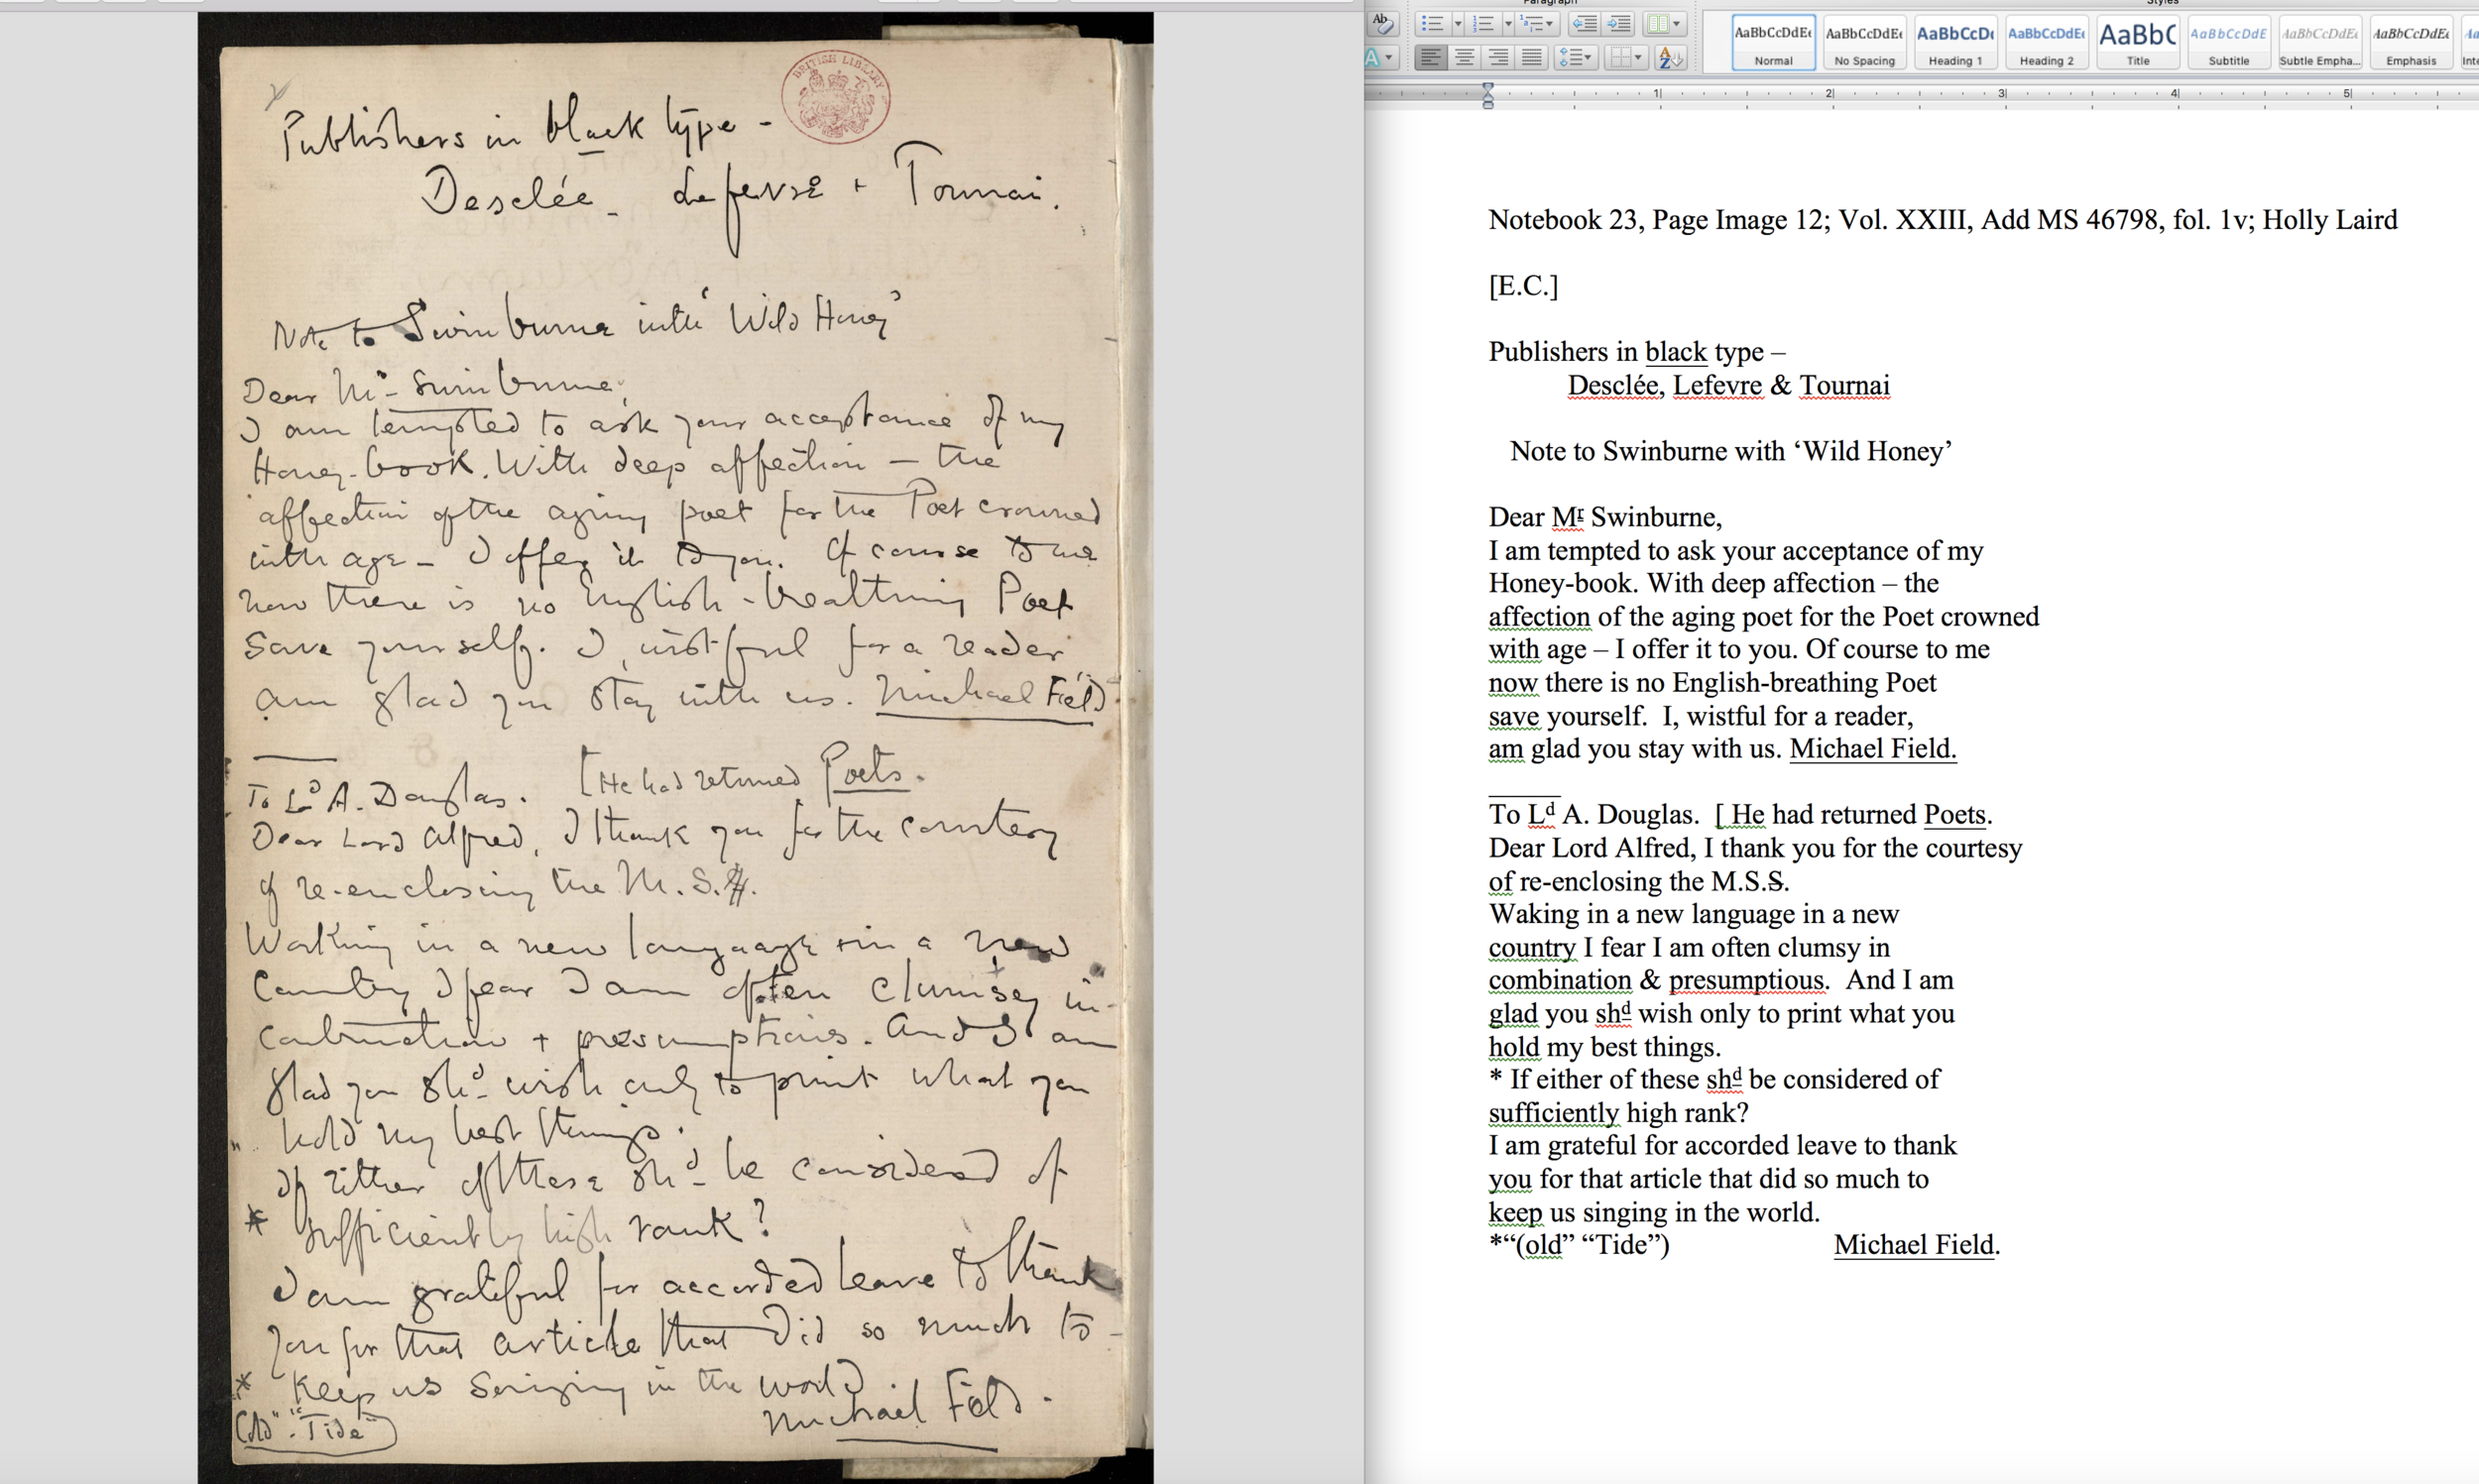 BRITISH LIBRARY
Publishers in black type -
Desclée - Lefevre + Tournai.
Note to Swinburne with 'Wild Honey'
Dear Mr Swinburne,
I am tempted to ask your acceptance of my
Honey-book. With deep affection – the
affection of the aging poet for the Poet crowned
with age – I offer it to you. Of course to me
now there is no English-breathing Poet
save yourself. I, wistful for a reader
am glad you stay with us. Michael Field
To Ld A. Douglas. [He had returned Poets.
Dear Lord Alfred, I thank you for the courtesy
of re-enclosing the M.S.S.
Walking in a new language + in a new
Country I fear I am often clumsey in
+ presumptious. And I am
glad you shd wish only to print what you
hold my best things.
If either of these shd be considered of
* sufficiently high rank?
I am grateful for accorded leave to thank
you for that article that did so much to
* Keep us singing in the world.
(old" "Tide" Michael Field.
Paragraph
Styles
AaBbCcDdEe AaBbCcDdEe AaBbCcDe AaBbCcDdEe AaBbC AaBbCcDdE AaBbCcDdEe AaBbCcDdEe
Normal No Spacing Heading 1 Heading 2 Title Subtitle Subtle Empha... Emphasis Inte
1 2 3 4 5
Notebook 23, Page Image 12; Vol. XXIII, Add MS 46798, fol. 1v; Holly Laird
[E.C.]
Publishers in black type –
Desclée, Lefevre & Tournai
Note to Swinburne with ‘Wild Honey’
Dear Mr Swinburne,
I am tempted to ask your acceptance of my
Honey-book. With deep affection – the
affection of the aging poet for the Poet crowned
with age – I offer it to you. Of course to me
now there is no English-breathing Poet
save yourself. I, wistful for a reader,
am glad you stay with us. Michael Field.
To Ld A. Douglas. [ He had returned Poets.
Dear Lord Alfred, I thank you for the courtesy
of re-enclosing the M.S.S.
Waking in a new language in a new
country I fear I am often clumsy in
combination & presumptious. And I am
glad you shd wish only to print what you
hold my best things.
* If either of these shd be considered of
sufficiently high rank?
I am grateful for accorded leave to thank
you for that article that did so much to
keep us singing in the world.
*“(old” “Tide”) Michael Field.